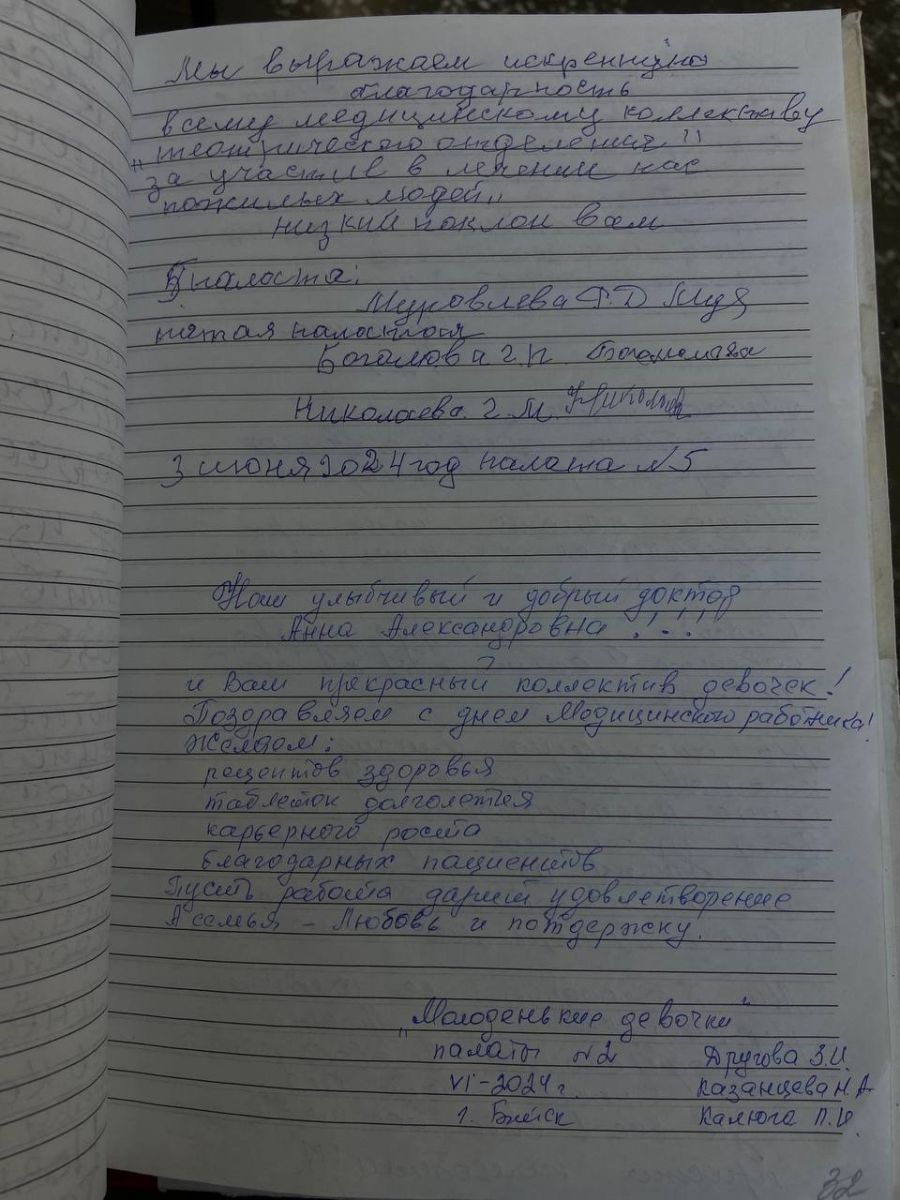 Мы выражаем искреннюю
благодарность
всему медицинскому коллективу
отделения "
за участие в лечении нас
пожилых людей"
низкий поклон вам
5 палата:
Муровлева Ф.Д
пятая палата
Боголюбва Г.П
Николаева Г.М.
3 июня 2024 год палата №5
Наш улыбчивый и добрый доктор
Анна Александровна !...
и Ваш прекрасный коллектив девочек!
Поздравляем с днем Медицинского работника!
Желаем:
рецептов здоровья
таблеток долголетия
карьерного роста
благодарных пациентов
Пусть работа дарит удовлетворение
А семья – Любовь и потдержку.
„Молоденькие девочки"
палаты №2 Другова З.И.
VI-2024 г. Казанцева Н.А
г. Бийск Калюга П.И.
32